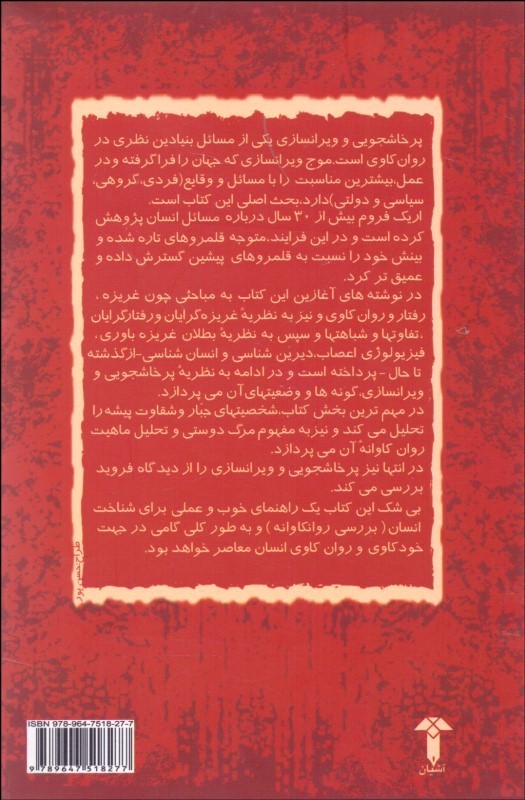 پرخاشجویی و ویرانسازی یکی از مسائل بنیادین نظری در
روان کاوی است.موج ویرانسازی که جهان را فرا گرفته و در
عمل،بیشترین مناسبت را با مسائل و وقایع(فردی،گروهی،
سیاسی و دولتی)دارد،بحث اصلی این کتاب است.
اریک فروم بیش از ۳۰ سال درباره مسائل انسان پژوهش
کرده است و در این فرایند،متوجه قلمروهای تازه شده و
بینش خود را نسبت به قلمروهای پیشین گسترش داده و
عمیق تر کرد.
در نوشته های آغازین این کتاب به مباحثی چون غریزه ،
رفتار و روان کاوی و نیز به نظریهٔ غریزه گرایان ورفتارگرایان
،تفاوتها و شباهتها و سپس به نظریهٔ بطلان غریزه باوری ،
فیزیولوژی اعصاب،دیرین شناسی و انسان شناسی-ازگذشته
تا حال - پرداخته است و در ادامه به نظریهٔ پرخاشجویی و
ویرانسازی،گونه ها و وضعیتهای آن می پردازد.
در مهم ترین بخش کتاب،شخصیتهای جبار و شقاوت پیشه را
تحلیل می کند و نیزبه مفهوم مرگ دوستی و تحلیل ماهیت
روان کاوانهٔ آن می پردازد.
در انتها نیز پرخاشجویی و ویرانسازی را از دیدگاه فروید
بررسی می کند.
بی شک این کتاب یک راهنمای خوب و عملی برای شناخت
انسان ( بررسی روانکاوانه ) و به طور کلی گامی در جهت
خودکاوی و روان کاوی انسان معاصر خواهد بود.
طراح:حسن پور
ISBN 978-964-7518-27-7
9 789647 518277
آشیان